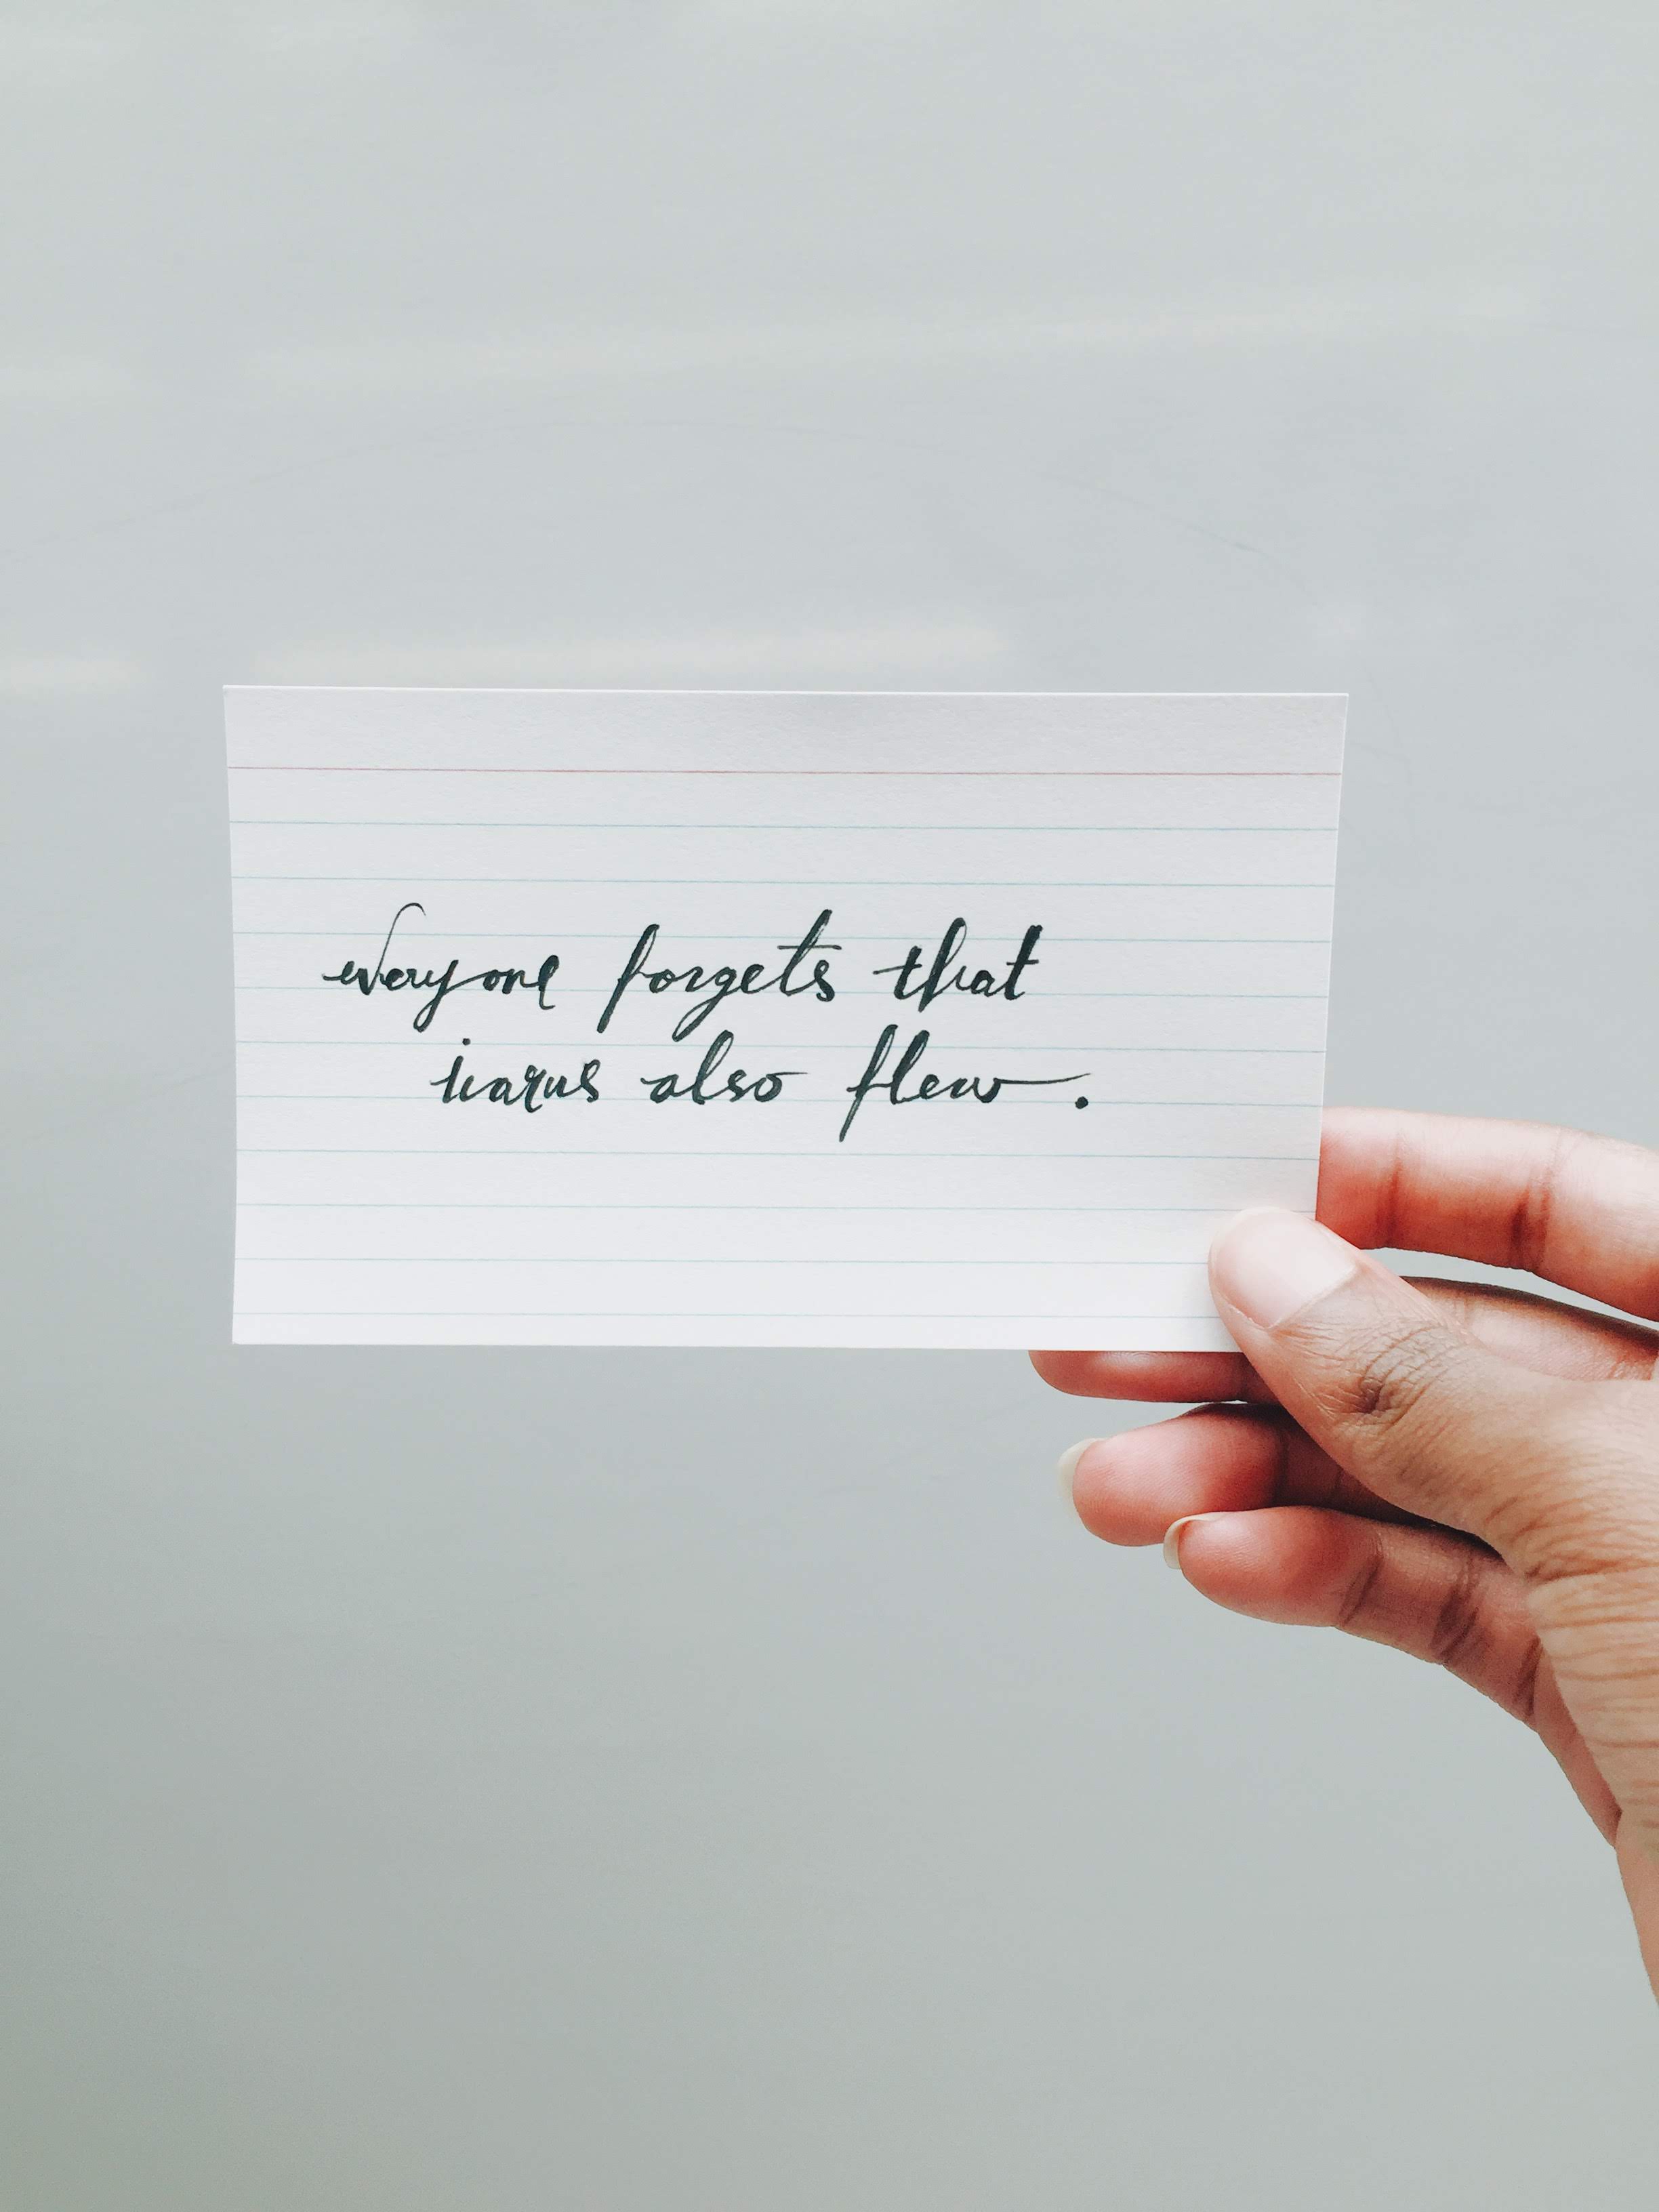 everyone forgets that
icarus also flew.